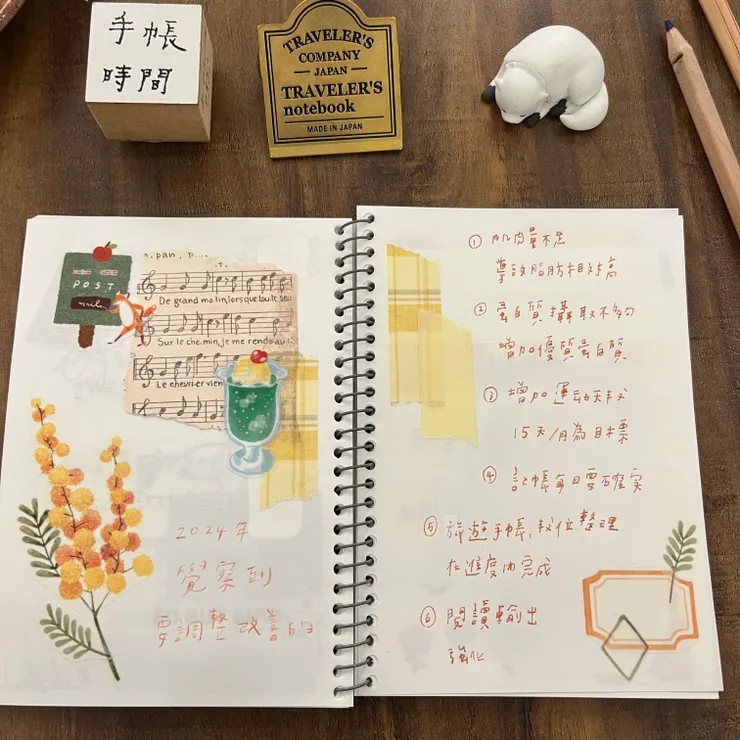 手帳
時間
TRAVELER'S
COMPANY
JAPAN
TRAVELER'S
notebook
MADE IN JAPAN
POST
De grand matin, lorsque toute
Sur le che.min, je me rends au
Le chevrier vien
2024年
覺察到
要調整改善的
① 肌肉量不足
導致脂肪相對高
② 蛋白質攝取不夠
增加優質蛋白質
③ 增加運動天數
15天/月為目標
④ 記帳每日要確實
⑤ 旅遊手帳,數位整理
在進度內完成
⑥ 閱讀輸出
強化